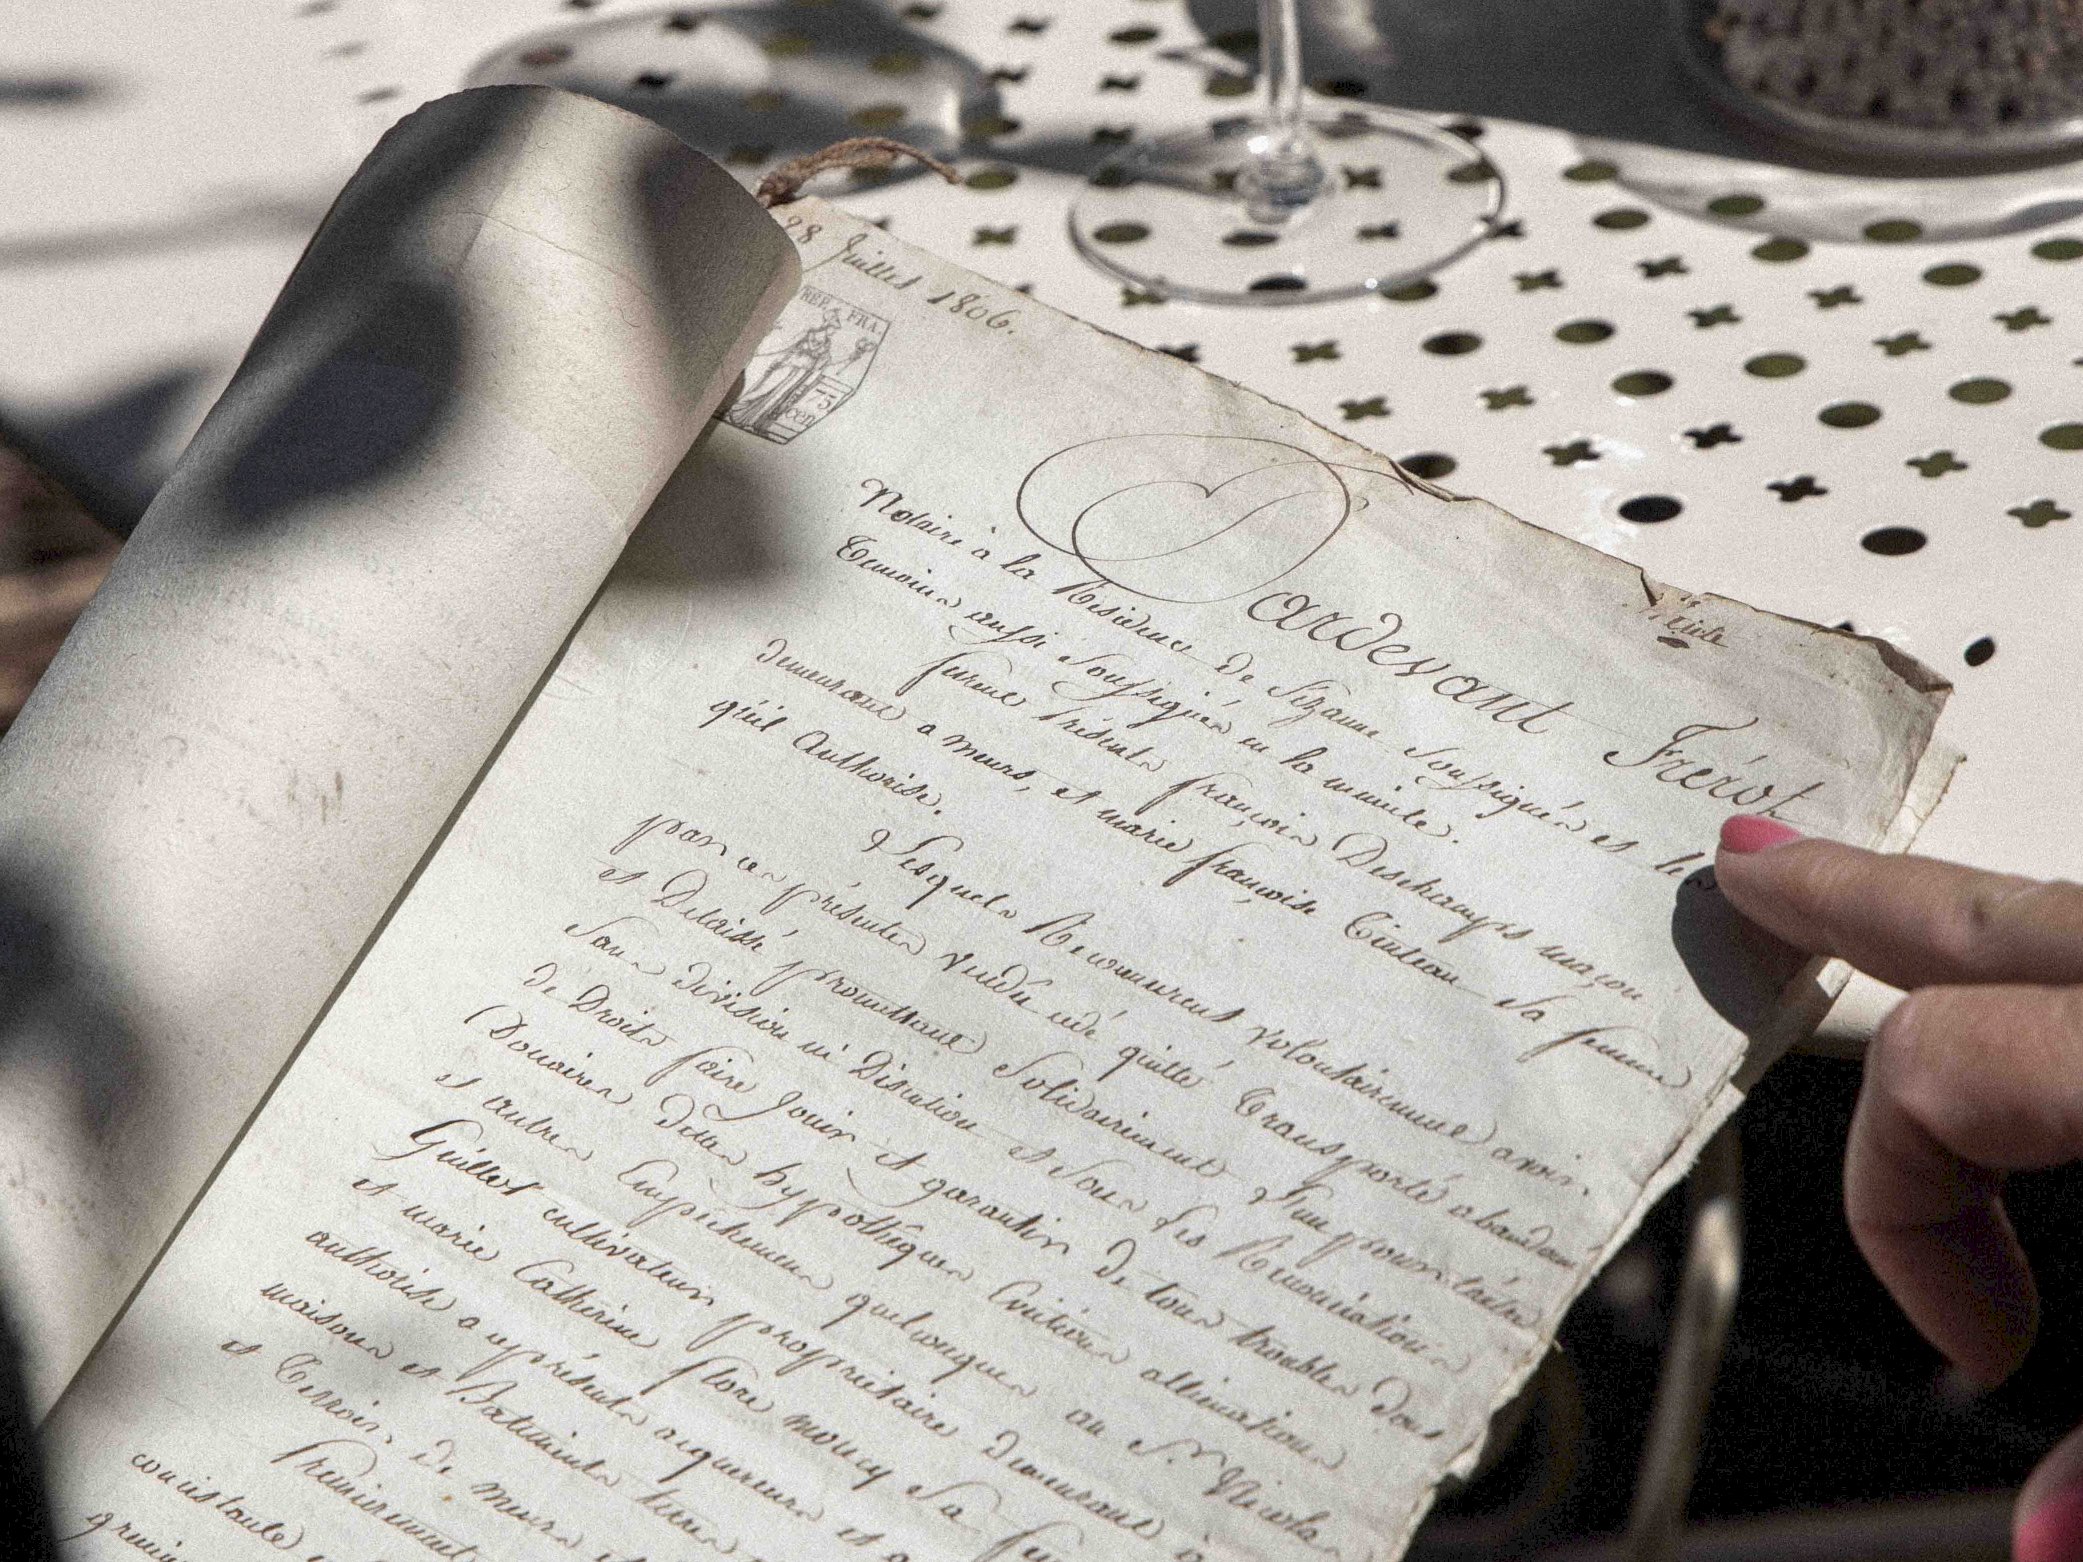 28 Juillet 1806.
REP. FRA.
75
cen
Pardevant Frérot
Notaire à la Résidence de Sézanne Soussigné et les
Temoins aussi Soussignés en la minute.
furent Présents françois Deschamps maçon
demeurant a murs, et marie françoise Tinteau Sa femme
quil Authorise.
Lesquels Reconnurent volontairement avoir
par ces présentes vendu cédé quitté Transporté abandonné
et Delaissé promettant Solidairement l'un pour l'autre
Sans division ni Discution et Sous les Renonciations
de Droits faire Jouir et garantir De tous troubles Dons
Douaires dettes hypothèques Evictions allienations
et autres Empechemens quelconques au Sr. Nicolas
Guillot cultivateur propriétaire Demeurant à
et marie Catherine flore moncy Sa
authorise a ce présents acquereurs et a
maison et Batiments terres
et Terroir de murs
Premierement
consistante